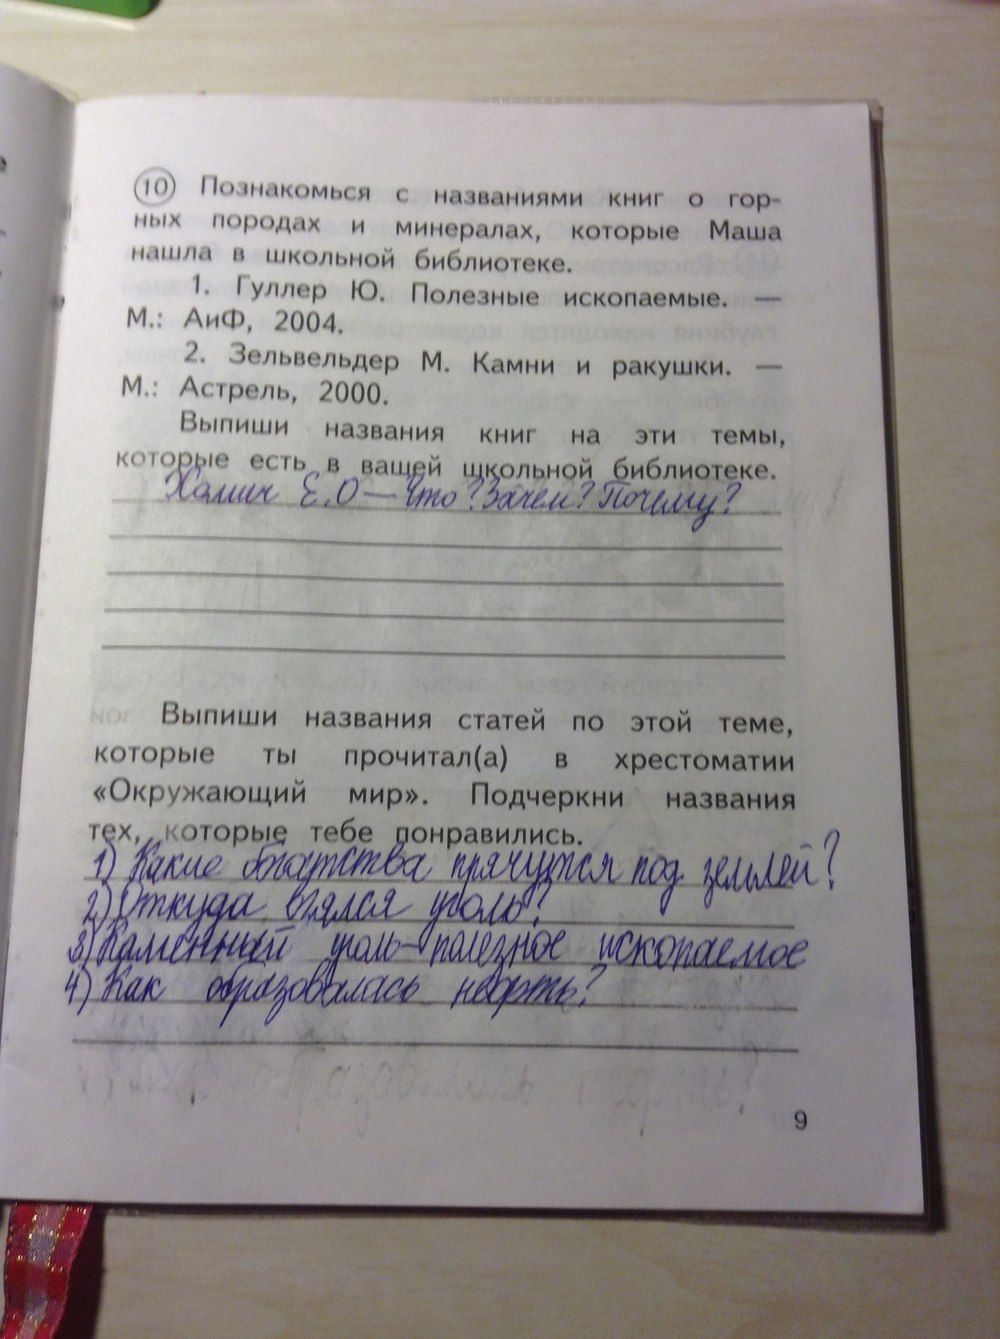 10 Познакомься с названиями книг о гор-
ных породах и минералах, которые Маша
нашла в школьной библиотеке.
1. Гуллер Ю. Полезные ископаемые. —
М.: АиФ, 2004.
2. Зельвельдер М. Камни и ракушки. —
М.: Астрель, 2000.
Выпиши названия книг на эти темы,
которые есть в вашей школьной библиотеке.
Е.О — Что? Зачем? Почему?
Выпиши названия статей по этой теме,
которые ты прочитал(а) в хрестоматии
«Окружающий мир». Подчеркни названия
тех, которые тебе понравились.
1) Какие богатства прячутся под землей?
2) Откуда взялся уголь?
3) Каменный уголь – полезное ископаемое
4) Как образовалась нефть?
9